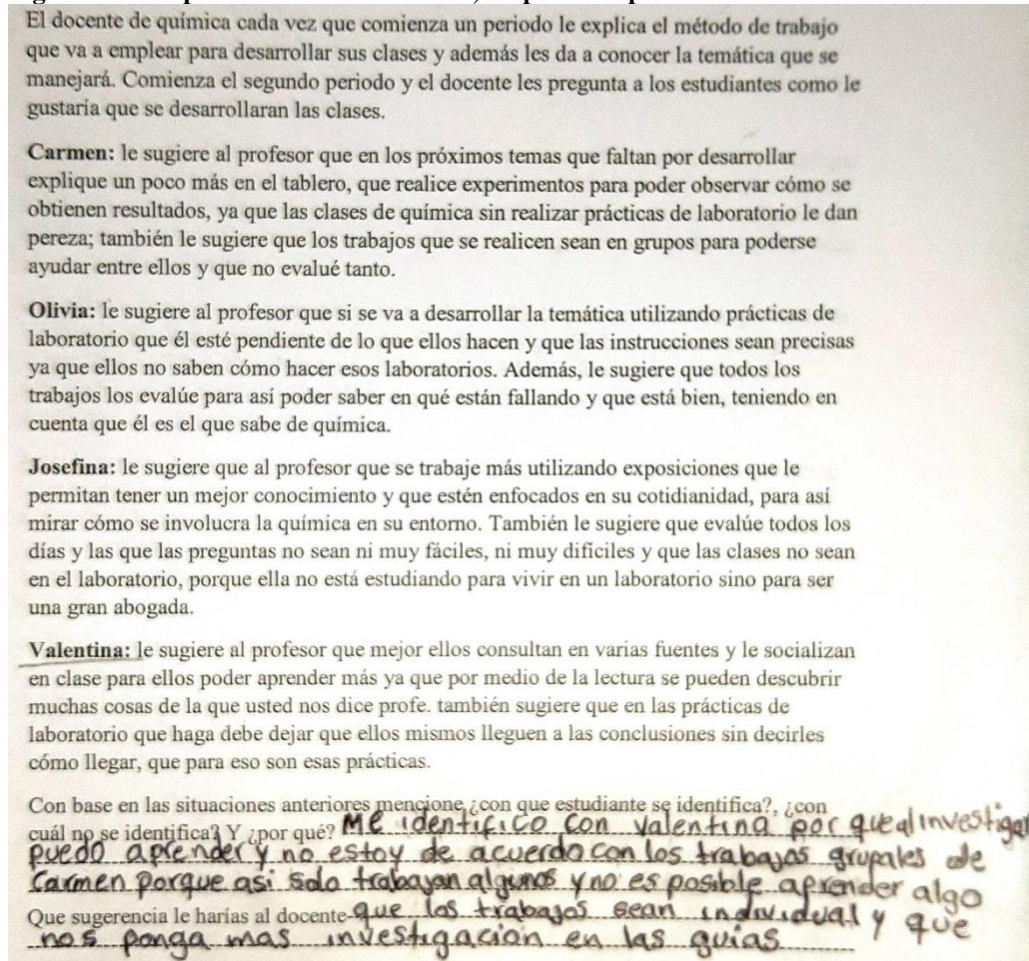 El docente de química cada vez que comienza un periodo le explica el método de trabajo
que va a emplear para desarrollar sus clases y además les da a conocer la temática que se
manejará. Comienza el segundo periodo y el docente les pregunta a los estudiantes como le
gustaría que se desarrollaran las clases.
Carmen: le sugiere al profesor que en los próximos temas que faltan por desarrollar
explique un poco más en el tablero, que realice experimentos para poder observar cómo se
obtienen resultados, ya que las clases de química sin realizar prácticas de laboratorio le dan
pereza; también le sugiere que los trabajos que se realicen sean en grupos para poderse
ayudar entre ellos y que no evalué tanto.
Olivia: le sugiere al profesor que si se va a desarrollar la temática utilizando prácticas de
laboratorio que él esté pendiente de lo que ellos hacen y que las instrucciones sean precisas
ya que ellos no saben cómo hacer esos laboratorios. Además, le sugiere que todos los
trabajos los evalúe para así poder saber en qué están fallando y que está bien, teniendo en
cuenta que él es el que sabe de química.
Josefina: le sugiere que al profesor que se trabaje más utilizando exposiciones que le
permitan tener un mejor conocimiento y que estén enfocados en su cotidianidad, para así
mirar cómo se involucra la química en su entorno. También le sugiere que evalúe todos los
días y las que las preguntas no sean ni muy fáciles, ni muy difíciles y que las clases no sean
en el laboratorio, porque ella no está estudiando para vivir en un laboratorio sino para ser
una gran abogada.
Valentina: le sugiere al profesor que mejor ellos consultan en varias fuentes y le socializan
en clase para ellos poder aprender más ya que por medio de la lectura se pueden descubrir
muchas cosas de la que usted nos dice profe. también sugiere que en las prácticas de
laboratorio que haga debe dejar que ellos mismos lleguen a las conclusiones sin decirles
cómo llegar, que para eso son esas prácticas.
Con base en las situaciones anteriores mencione ¿con que estudiante se identifica?, ¿con
cuál no se identifica? Y ¿por qué? Me identifico con valentina por que al investigar
puedo aprender y no estoy de acuerdo con los trabajos grupales de
Carmen porque asi solo trabajan algunos y no es posible aprender algo
Que sugerencia le harías al docente que los trabajos sean individual y que
nos ponga mas investigación en las guias